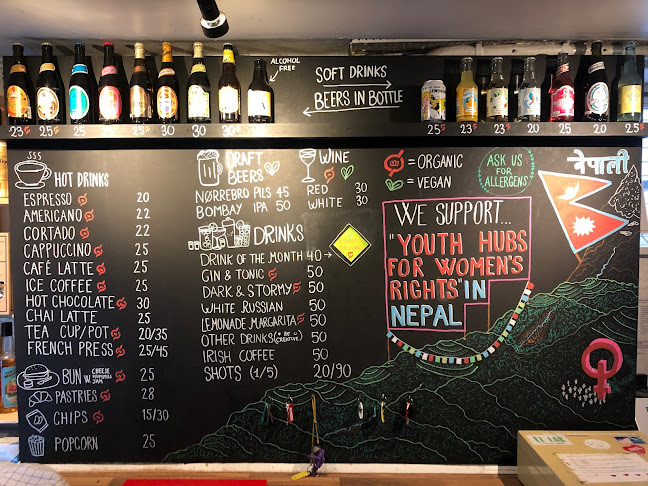 ALCOHOL
FREE
SOFT DRINKS
BEERS IN BOTTLE
23 25 25 25 30 30 30
25 23 20 25 20 25
HOT DRINKS
ESPRESSO 20
AMERICANO 22
CORTADO 22
CAPPUCCINO 25
CAFÉ LATTE 25
ICE COFFEE 25
HOT CHOCOLATE 30
CHAI LATTE 25
TEA CUP/POT 20/35
FRENCH PRESS 25/45
BUN W. CHEESE JAM 25
PASTRIES 28
CHIPS 15/30
POPCORN 25
DRAFT
BEERS
NØRREBRO PILS 45
BOMBAY IPA 50
WINE
RED 30
WHITE 30
DRINKS
DRINK OF THE MONTH 40
GIN & TONIC 50
DARK & STORMY 50
WHITE RUSSIAN 50
LEMONADE MARGARITA 50
OTHER DRINKS (BE CREATIVE) 50
IRISH COFFEE 50
SHOTS (1/5) 20/90
= ORGANIC
= VEGAN
ASK US
FOR
ALLERGENS
नेपाली
WE SUPPORT...
"YOUTH HUBS
FOR WOMEN'S
RIGHTS" IN
NEPAL